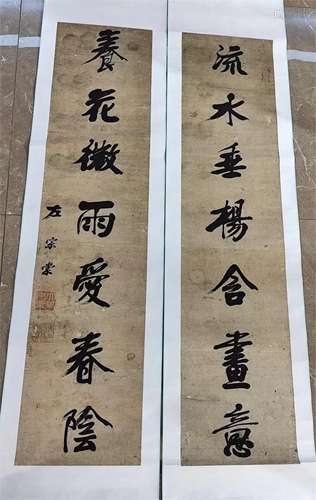 流水垂楊含畫意
養花微雨愛春陰
左宗棠